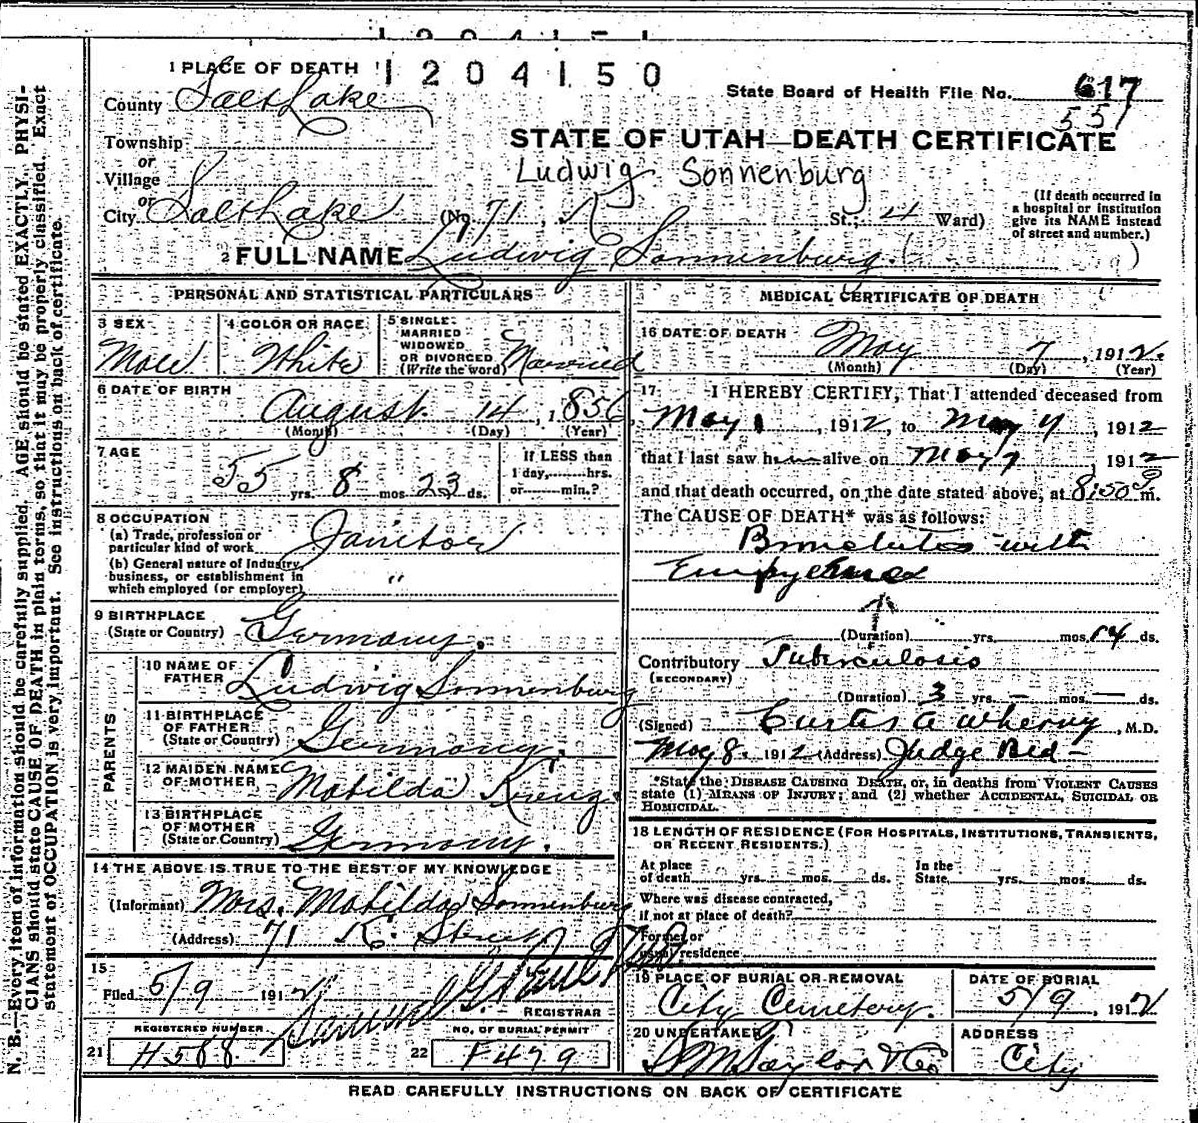 1204150
1 PLACE OF DEATH
County Salt Lake
State Board of Health File No. 617
557
Township
or
Village
or
STATE OF UTAH—DEATH CERTIFICATE
Ludwig Sonnenburg
City Salt Lake (No. 71, K St.; 4 Ward)
(If death occurred in
a hospital or institution
give its NAME instead
of street and number.)
2 FULL NAME Ludwig Sonnenburg ( )
PERSONAL AND STATISTICAL PARTICULARS
3 SEX
Male
4 COLOR OR RACE
White
5 SINGLE
MARRIED
WIDOWED
OR DIVORCED
(Write the word) Married
6 DATE OF BIRTH
August 14, 1856
(Month) (Day) (Year)
7 AGE
55 yrs. 8 mos. 23 ds.
If LESS than
1 day,......hrs.
or......min.?
8 OCCUPATION
(a) Trade, profession or
particular kind of work Janitor
(b) General nature of Industry,
business, or establishment in
which employed (or employer) "
9 BIRTHPLACE
(State or Country) Germany.
PARENTS
10 NAME OF
FATHER Ludwig Sonnenburg
11 BIRTHPLACE
OF FATHER
(State or Country) Germany.
12 MAIDEN NAME
OF MOTHER Matilda
13 BIRTHPLACE
OF MOTHER
(State or Country) Germany.
14 THE ABOVE IS TRUE TO THE BEST OF MY KNOWLEDGE
(Informant) Mrs. Matilda Sonnenburg
(Address) 71 K. Street
15
Filed 5/9 1912 Samuel G. Paul
REGISTRAR
REGISTERED NUMBER
21 H588
NO. OF BURIAL PERMIT
22 F479
MEDICAL CERTIFICATE OF DEATH
16 DATE OF DEATH
May 7, 1912.
(Month) (Day) (Year)
17 I HEREBY CERTIFY, That I attended deceased from
May 1, 1912, to May, 1912
that I last saw h alive on May 7 1912
and that death occurred, on the date stated above, at 8:50 P m.
The CAUSE OF DEATH* was as follows:
Bronchitis with
Empyema
(Duration) yrs. mos. 14 ds.
Contributory Tuberculosis
(SECONDARY)
(Duration) 3 yrs. — mos. — ds.
(Signed) Curtis A Wherry, M.D.
May 8. 1912 (Address) Judge Bld
*State the DISEASE CAUSING DEATH, or, in deaths from VIOLENT CAUSES
state (1) MEANS OF INJURY; and (2) whether ACCIDENTAL, SUICIDAL OR
HOMICIDAL.
18 LENGTH OF RESIDENCE (FOR HOSPITALS, INSTITUTIONS, TRANSIENTS,
OR RECENT RESIDENTS.)
At place
of death......yrs......mos......ds.
In the
State......yrs......mos......ds.
Where was disease contracted,
if not at place of death?
Former or
usual residence
19 PLACE OF BURIAL OR REMOVAL
City Cemetery.
DATE OF BURIAL
5/9, 1912
20 UNDERTAKER
S M Taylor & Co
ADDRESS
City
READ CAREFULLY INSTRUCTIONS ON BACK OF CERTIFICATE
N. B.—Every item of information should be carefully supplied. AGE should be stated EXACTLY. PHYSI-
CIANS should state CAUSE OF DEATH in plain terms, so that it may be properly classified. Exact
statement of OCCUPATION is very important. See instructions on back of certificate.